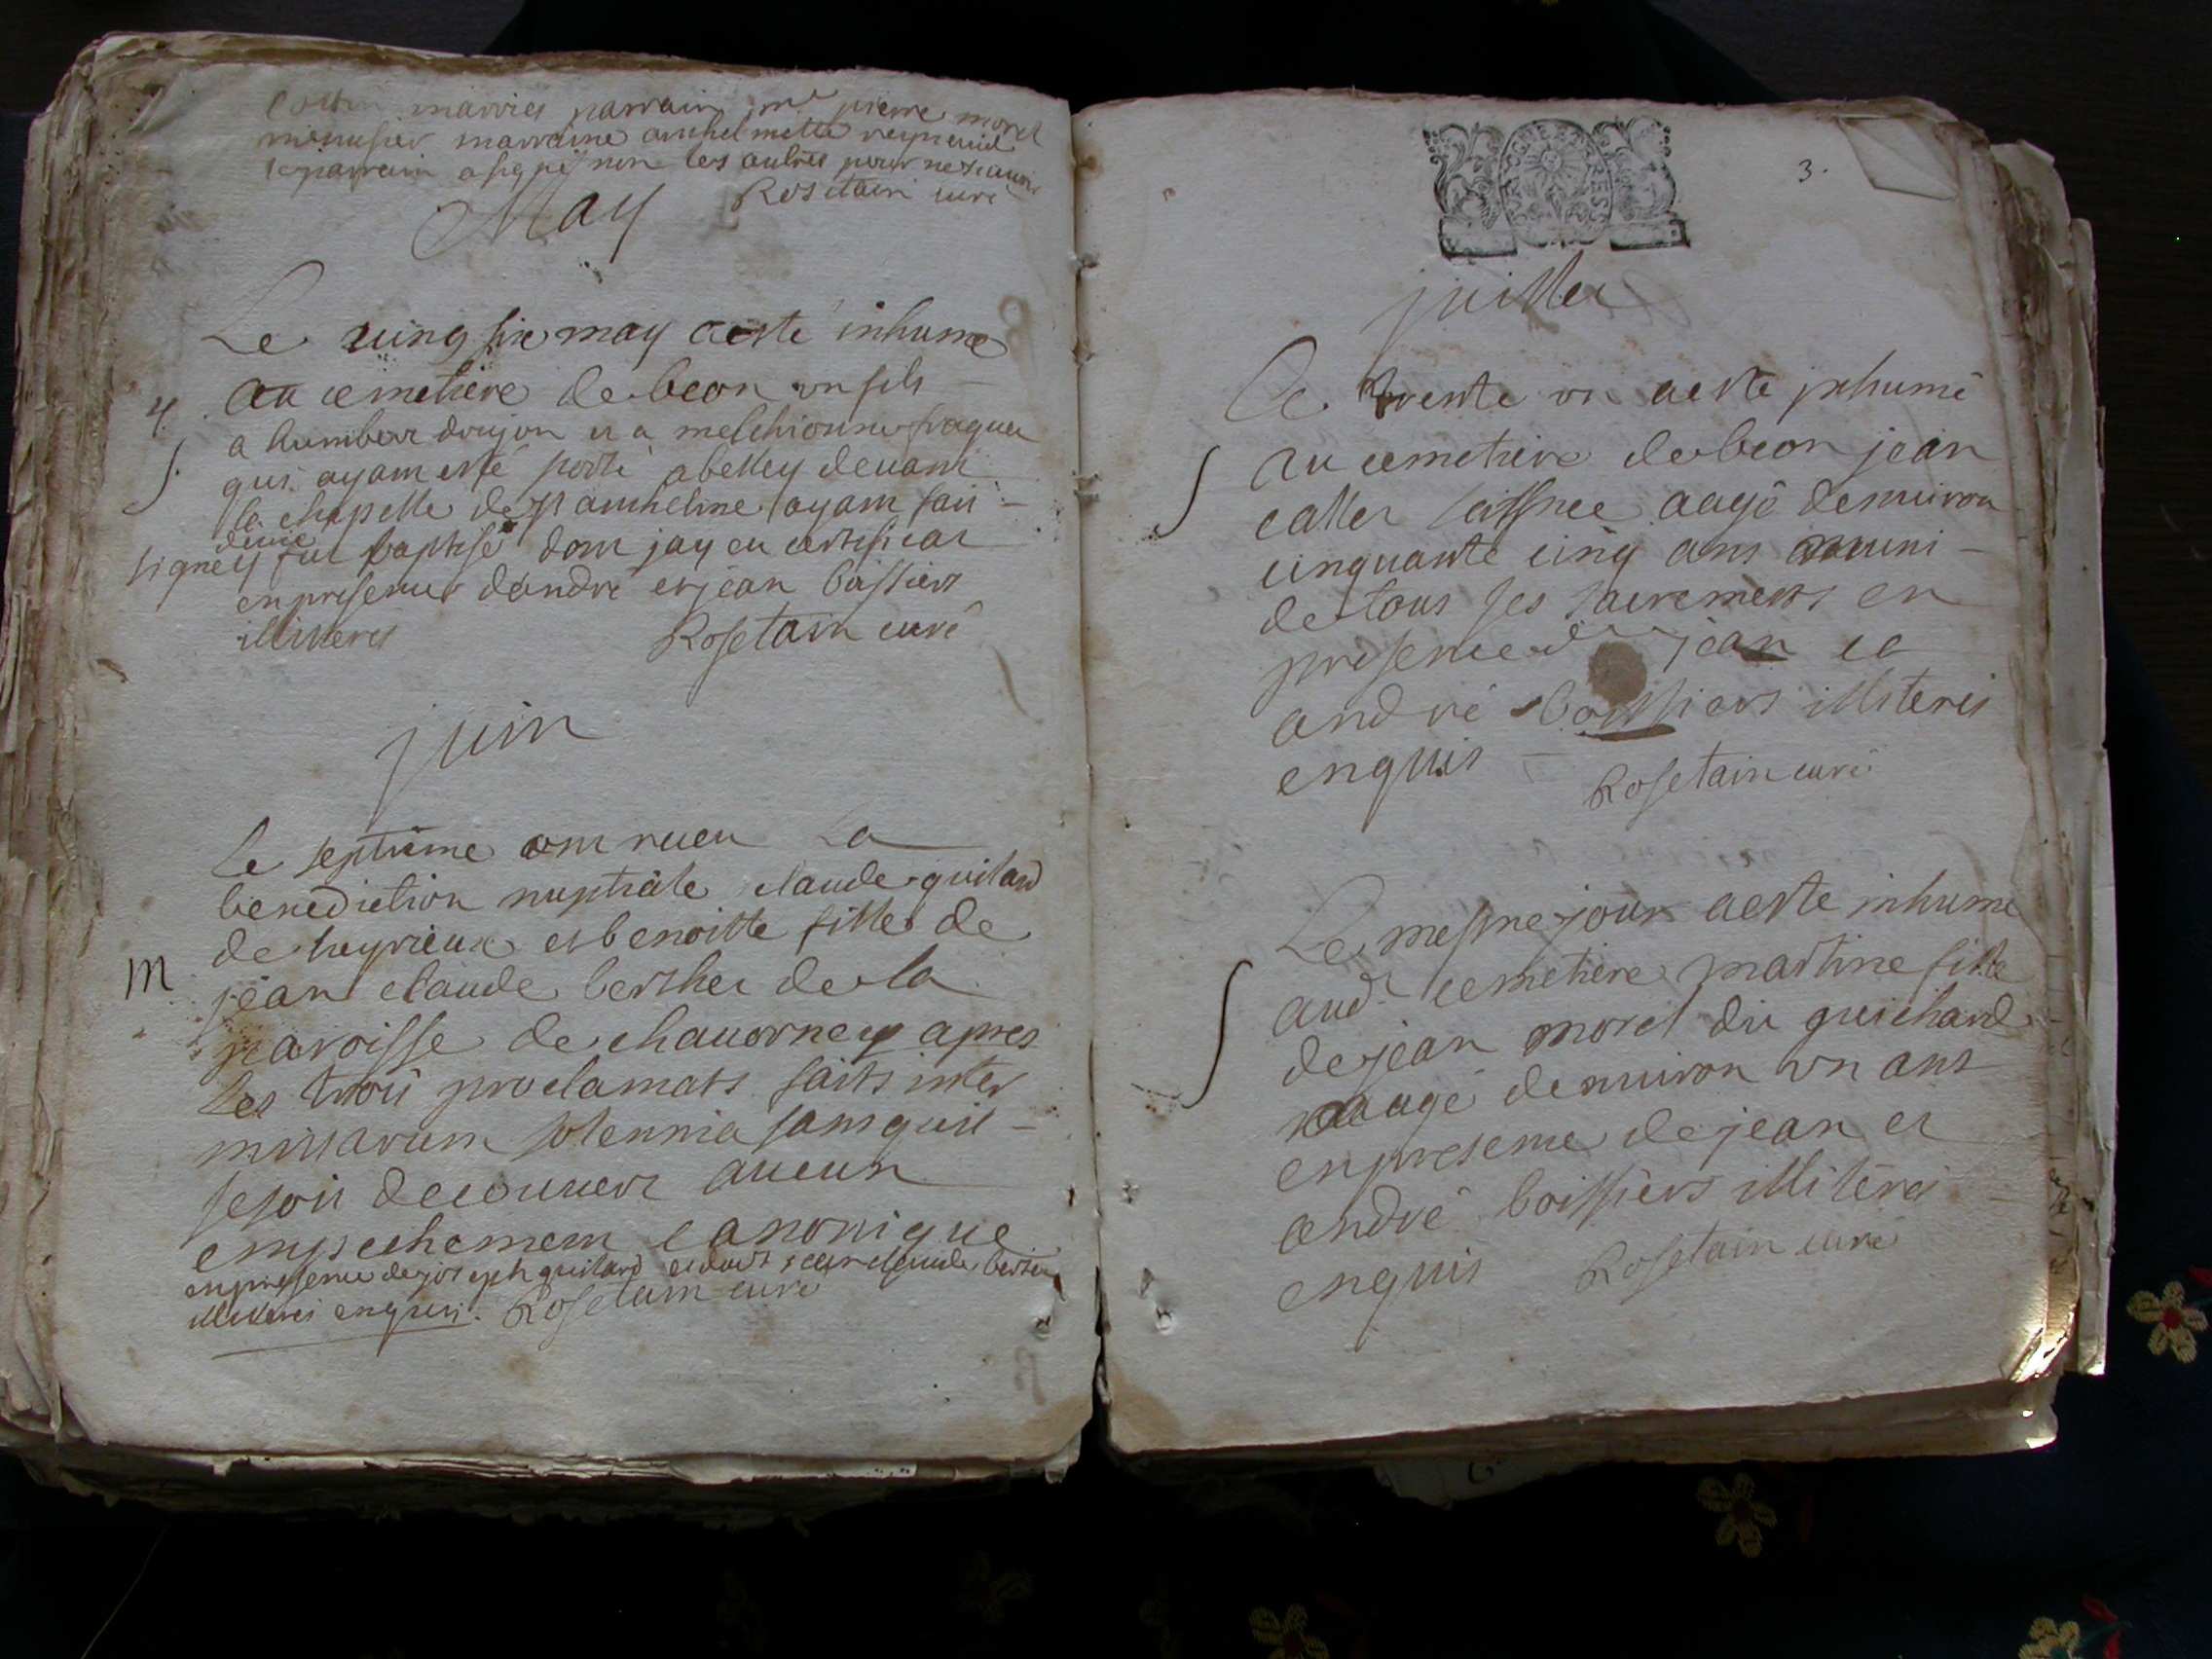 marries parrain mᵉ pierre morel
menusier marraine anthelmette
le parrain a signé non les autres pour ne scavoir
Rosetain curé
May
Le ving six may a esté inhumé
au cemetiere de beon un fils
4. a humber doujon et a melchionne fraquet
S. qui ayant esté porté a belley devant
la chapelle de st anthelme ayant fait
signe de vie y fut baptisé dont jay eu certificat
en presence dandré et jean boissiers
illiterés Rosetain curé
juin
Le septième ont receu La
benediction nuptiale claude guilard
de heyrieux et benoitte fille de
M jean claude berthet de la
paroisse de chavorney apres
les trois proclamats faits inter
missarum solennia sans quil
se soit decouvert aucun
empechement canonique
en presence de joseph guilard et dudt jean claude berthet
illiterés enquis. Rosetain curé
3.
juillet
Le trente un a esté jnhumé
S au cemetiere de beon jean
callet laisnee aagé denviron
cinquante cinq ans muni
de tous ses sacrements en
presence de jean et
andré boissiers illiterés
enquis Rosetain curé
Le mesme jour a esté inhumé
S audt cemetiere martine fille
de jean morel dit guichard
aagé denviron un ans
en presence de jean et
andré boissiers illiterés
enquis Rosetain curé